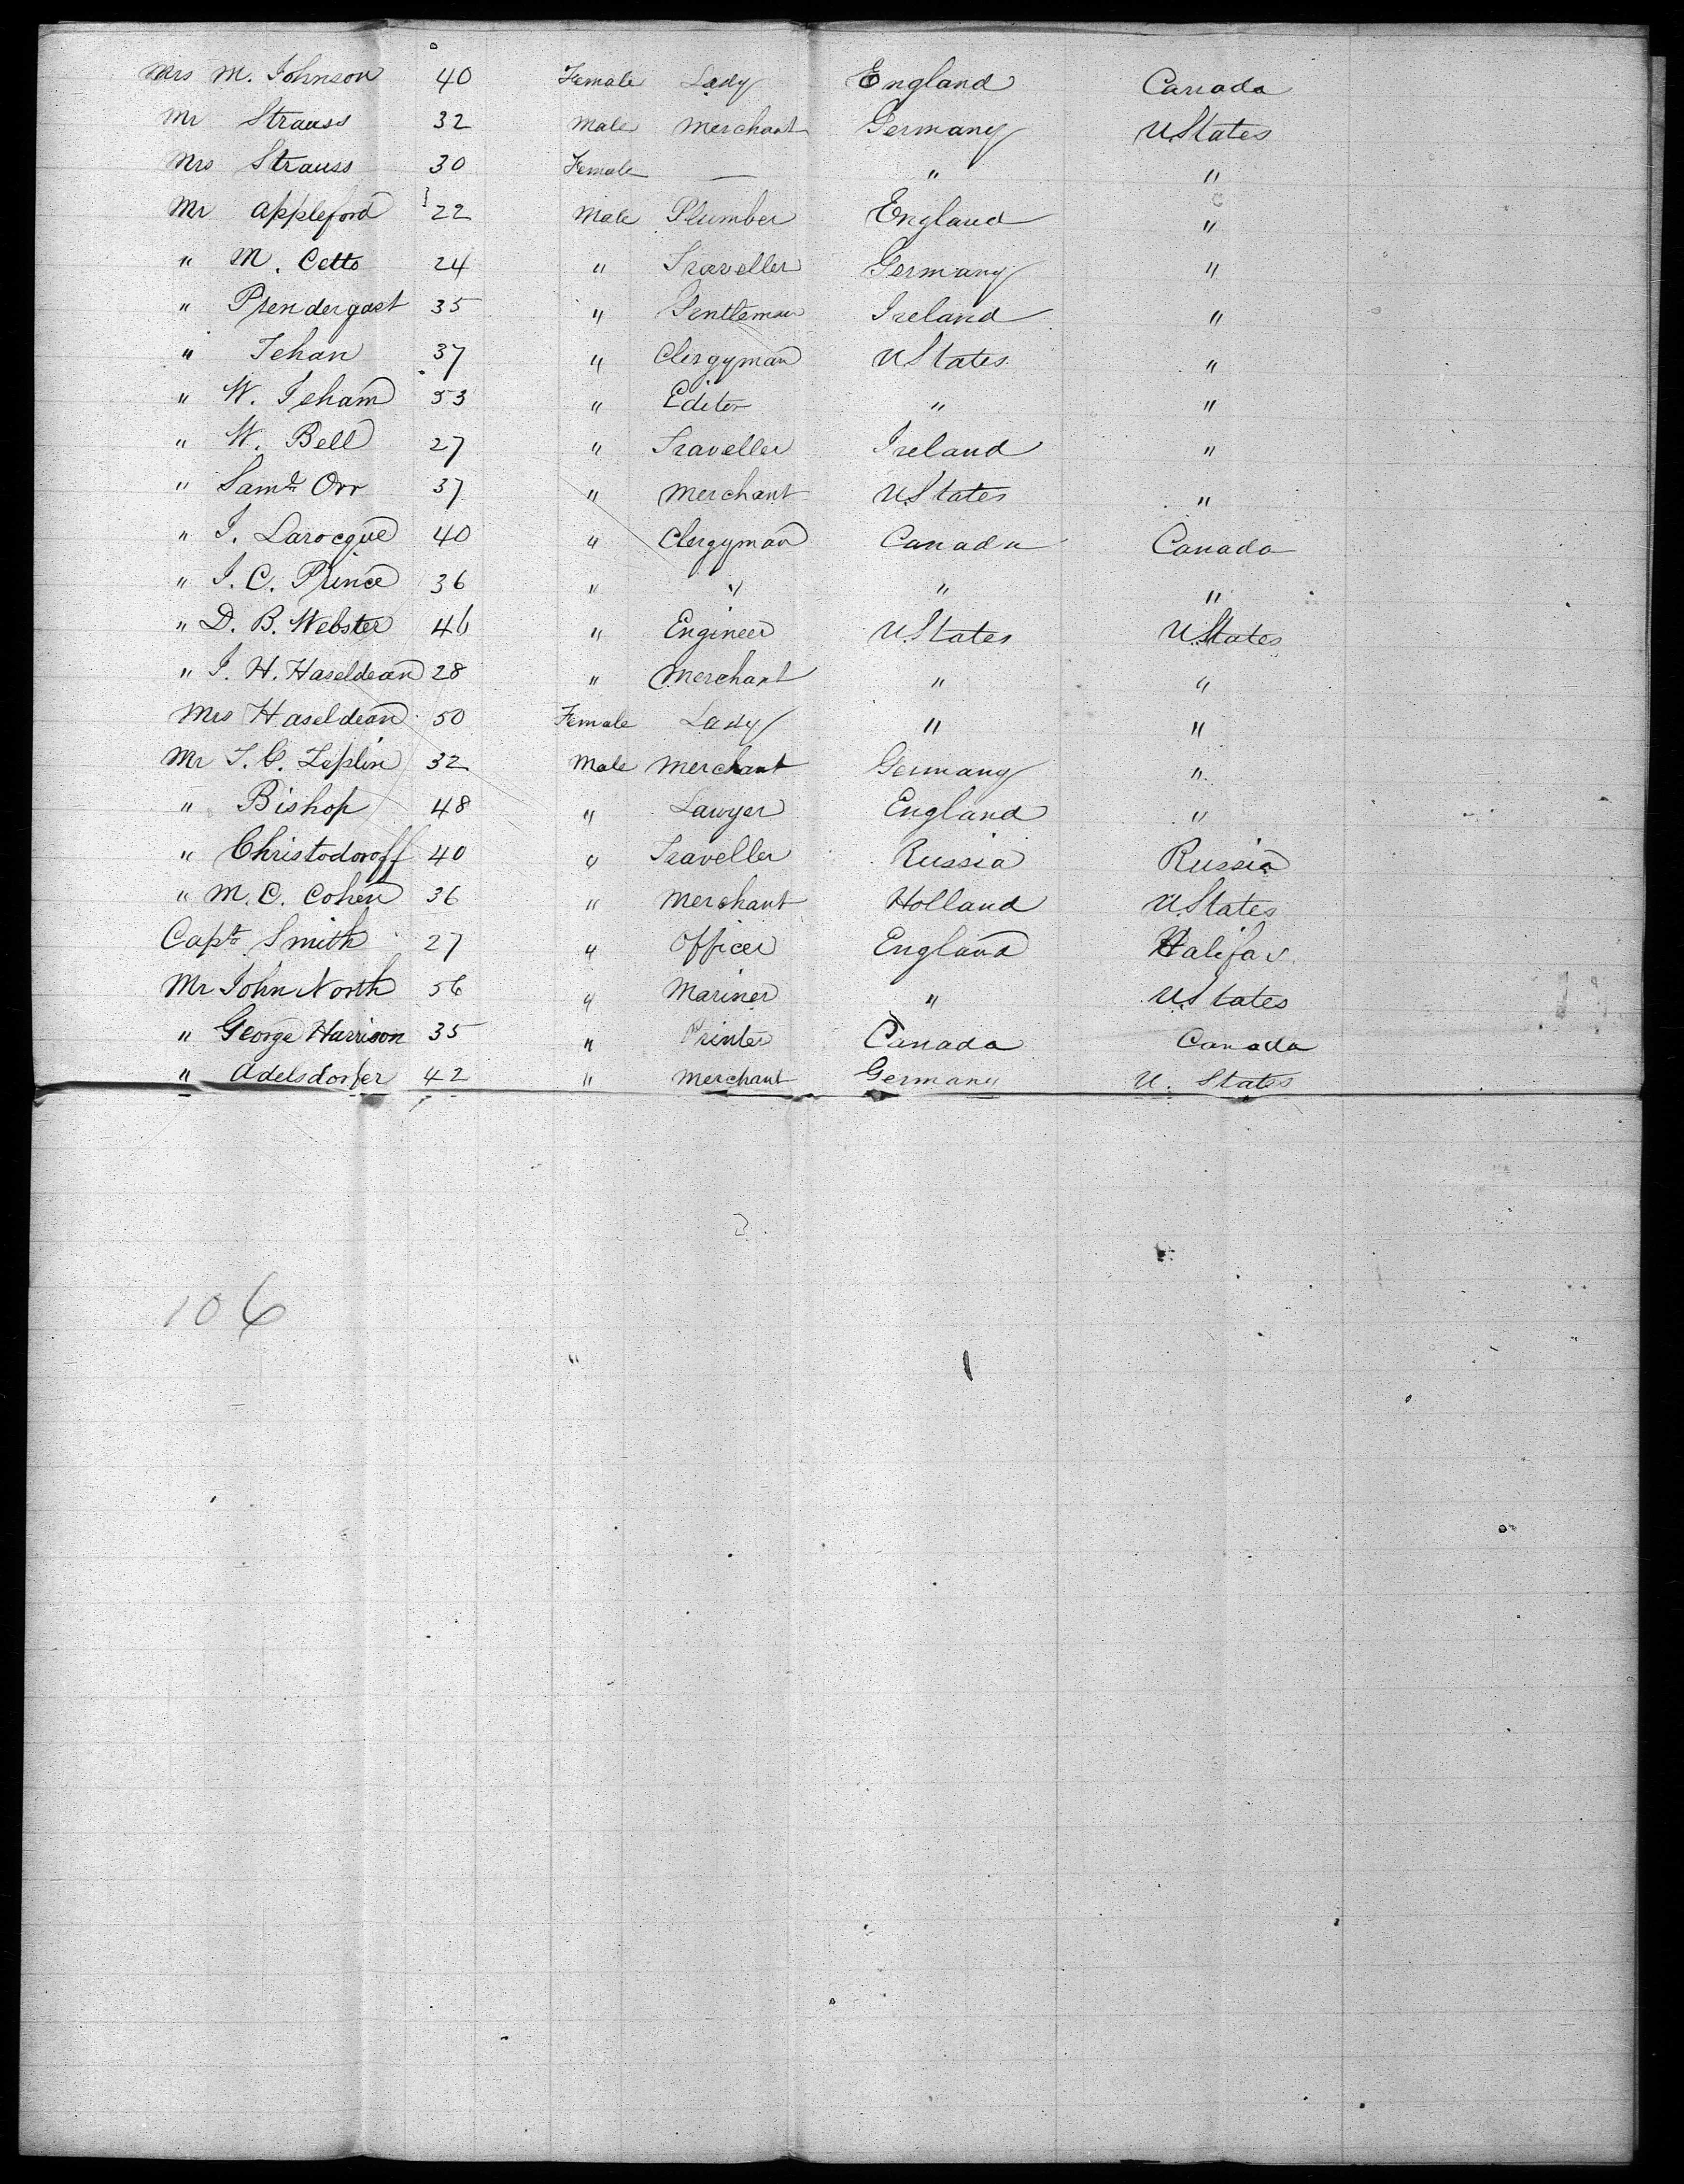 Mrs M. Johnson 40 Female Lady England Canada
Mr Strauss 32 Male Merchant Germany U States
Mrs Strauss 30 Female — " "
Mr Appleford 22 Male Plumber England "
" M. Cetto 24 " Traveller Germany "
" Prendergast 35 " Gentleman Ireland "
" Jehan 37 " Clergyman U States "
" W. Jeham 53 " Editor " "
" W. Bell 27 " Traveller Ireland "
" Saml Orr 37 " Merchant U States "
" J. Larocque 40 " Clergyman Canada Canada
" J. C. Prince 36 " " " "
" D. B. Webster 46 " Engineer U States U States
" J. H. Haseldean 28 " Merchant " "
Mrs Haseldean 50 Female Lady " "
Mr J. C. Zeplin 32 Male Merchant Germany "
" Bishop 48 " Lawyer England "
" Christodoroff 40 " Traveller Russia Russia
" M. C. Cohen 36 " Merchant Holland U States
Capt Smith 27 " Officer England Halifax
Mr John North 56 " Mariner " U States
" George Harrison 35 " Printer Canada Canada
" Adelsdorfer 42 " Merchant Germany U. States
106